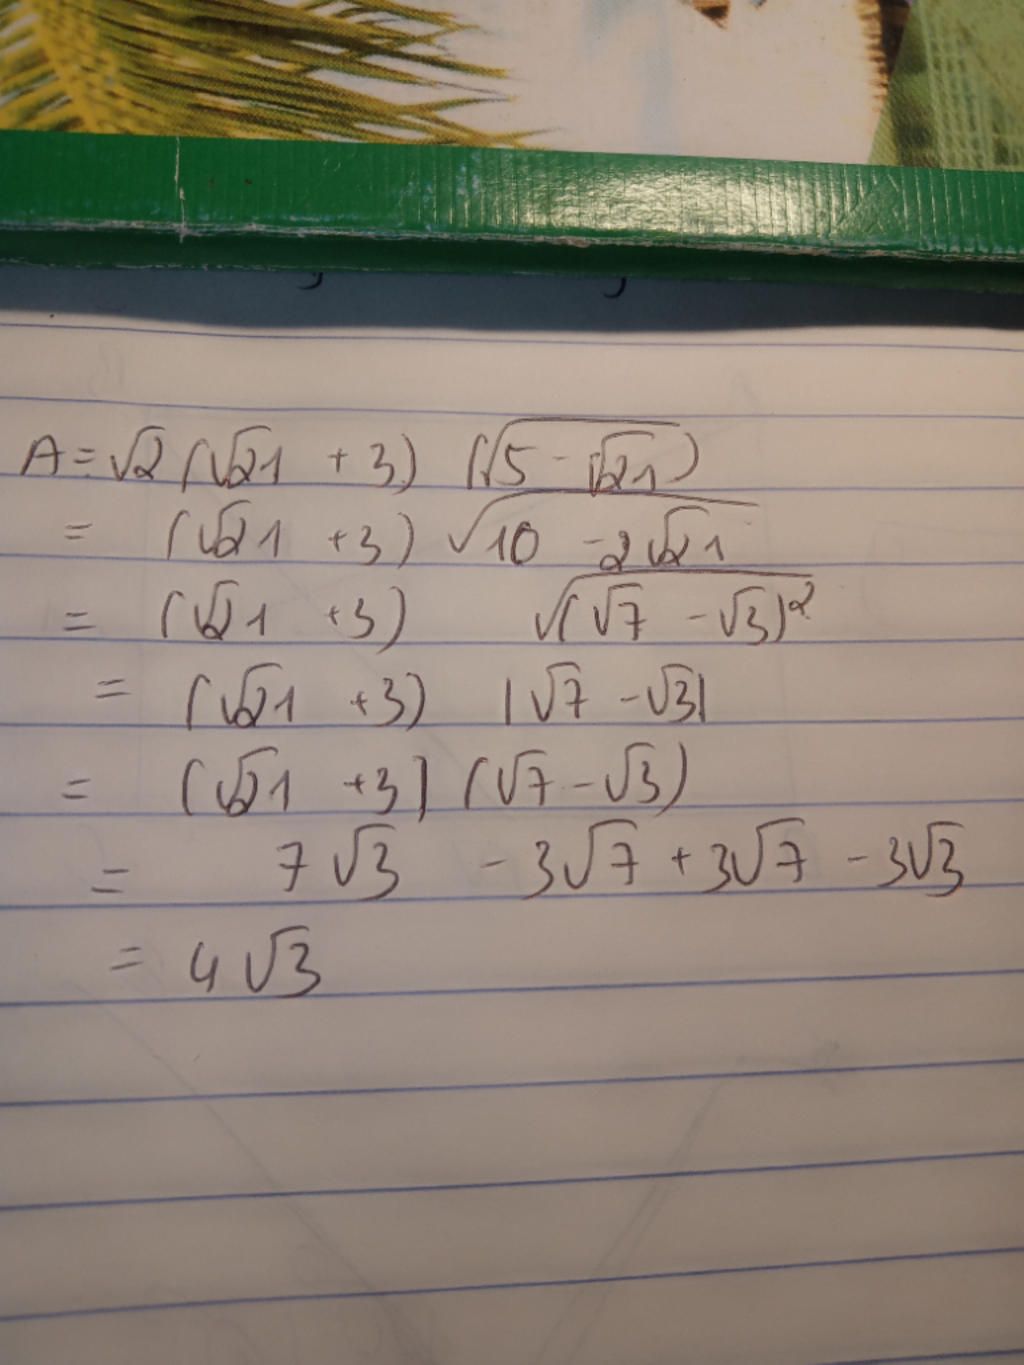 A = √2 (√21 + 3) (√(5 - √21))
= (√21 + 3) √(10 - 2√21)
= (√21 + 3) √((√7 - √3)²)
= (√21 + 3) |√7 - √3|
= (√21 + 3) (√7 - √3)
= 7√3 - 3√7 + 3√7 - 3√3
= 4√3